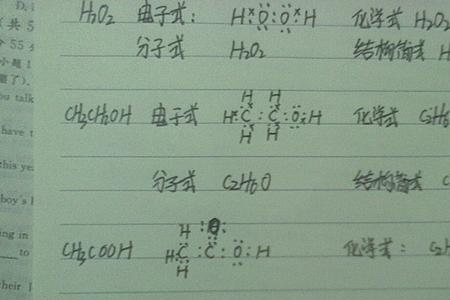 H₂O₂ 电子式: H×Ö:Ö×H 化学式 H₂O₂
分子式 H₂O₂ 结构简式 H
CH₃CH₂OH 电子式 H H
H C C O H 化学式 C₂H₆
H H
分子式 C₂H₆O 结构简式 C
H O
CH₃COOH H C C O H 化学式: C₂H
H
D.
(共 5
55
小题 1
ou talk
have t
this ye
boy's
ng in
to
heir